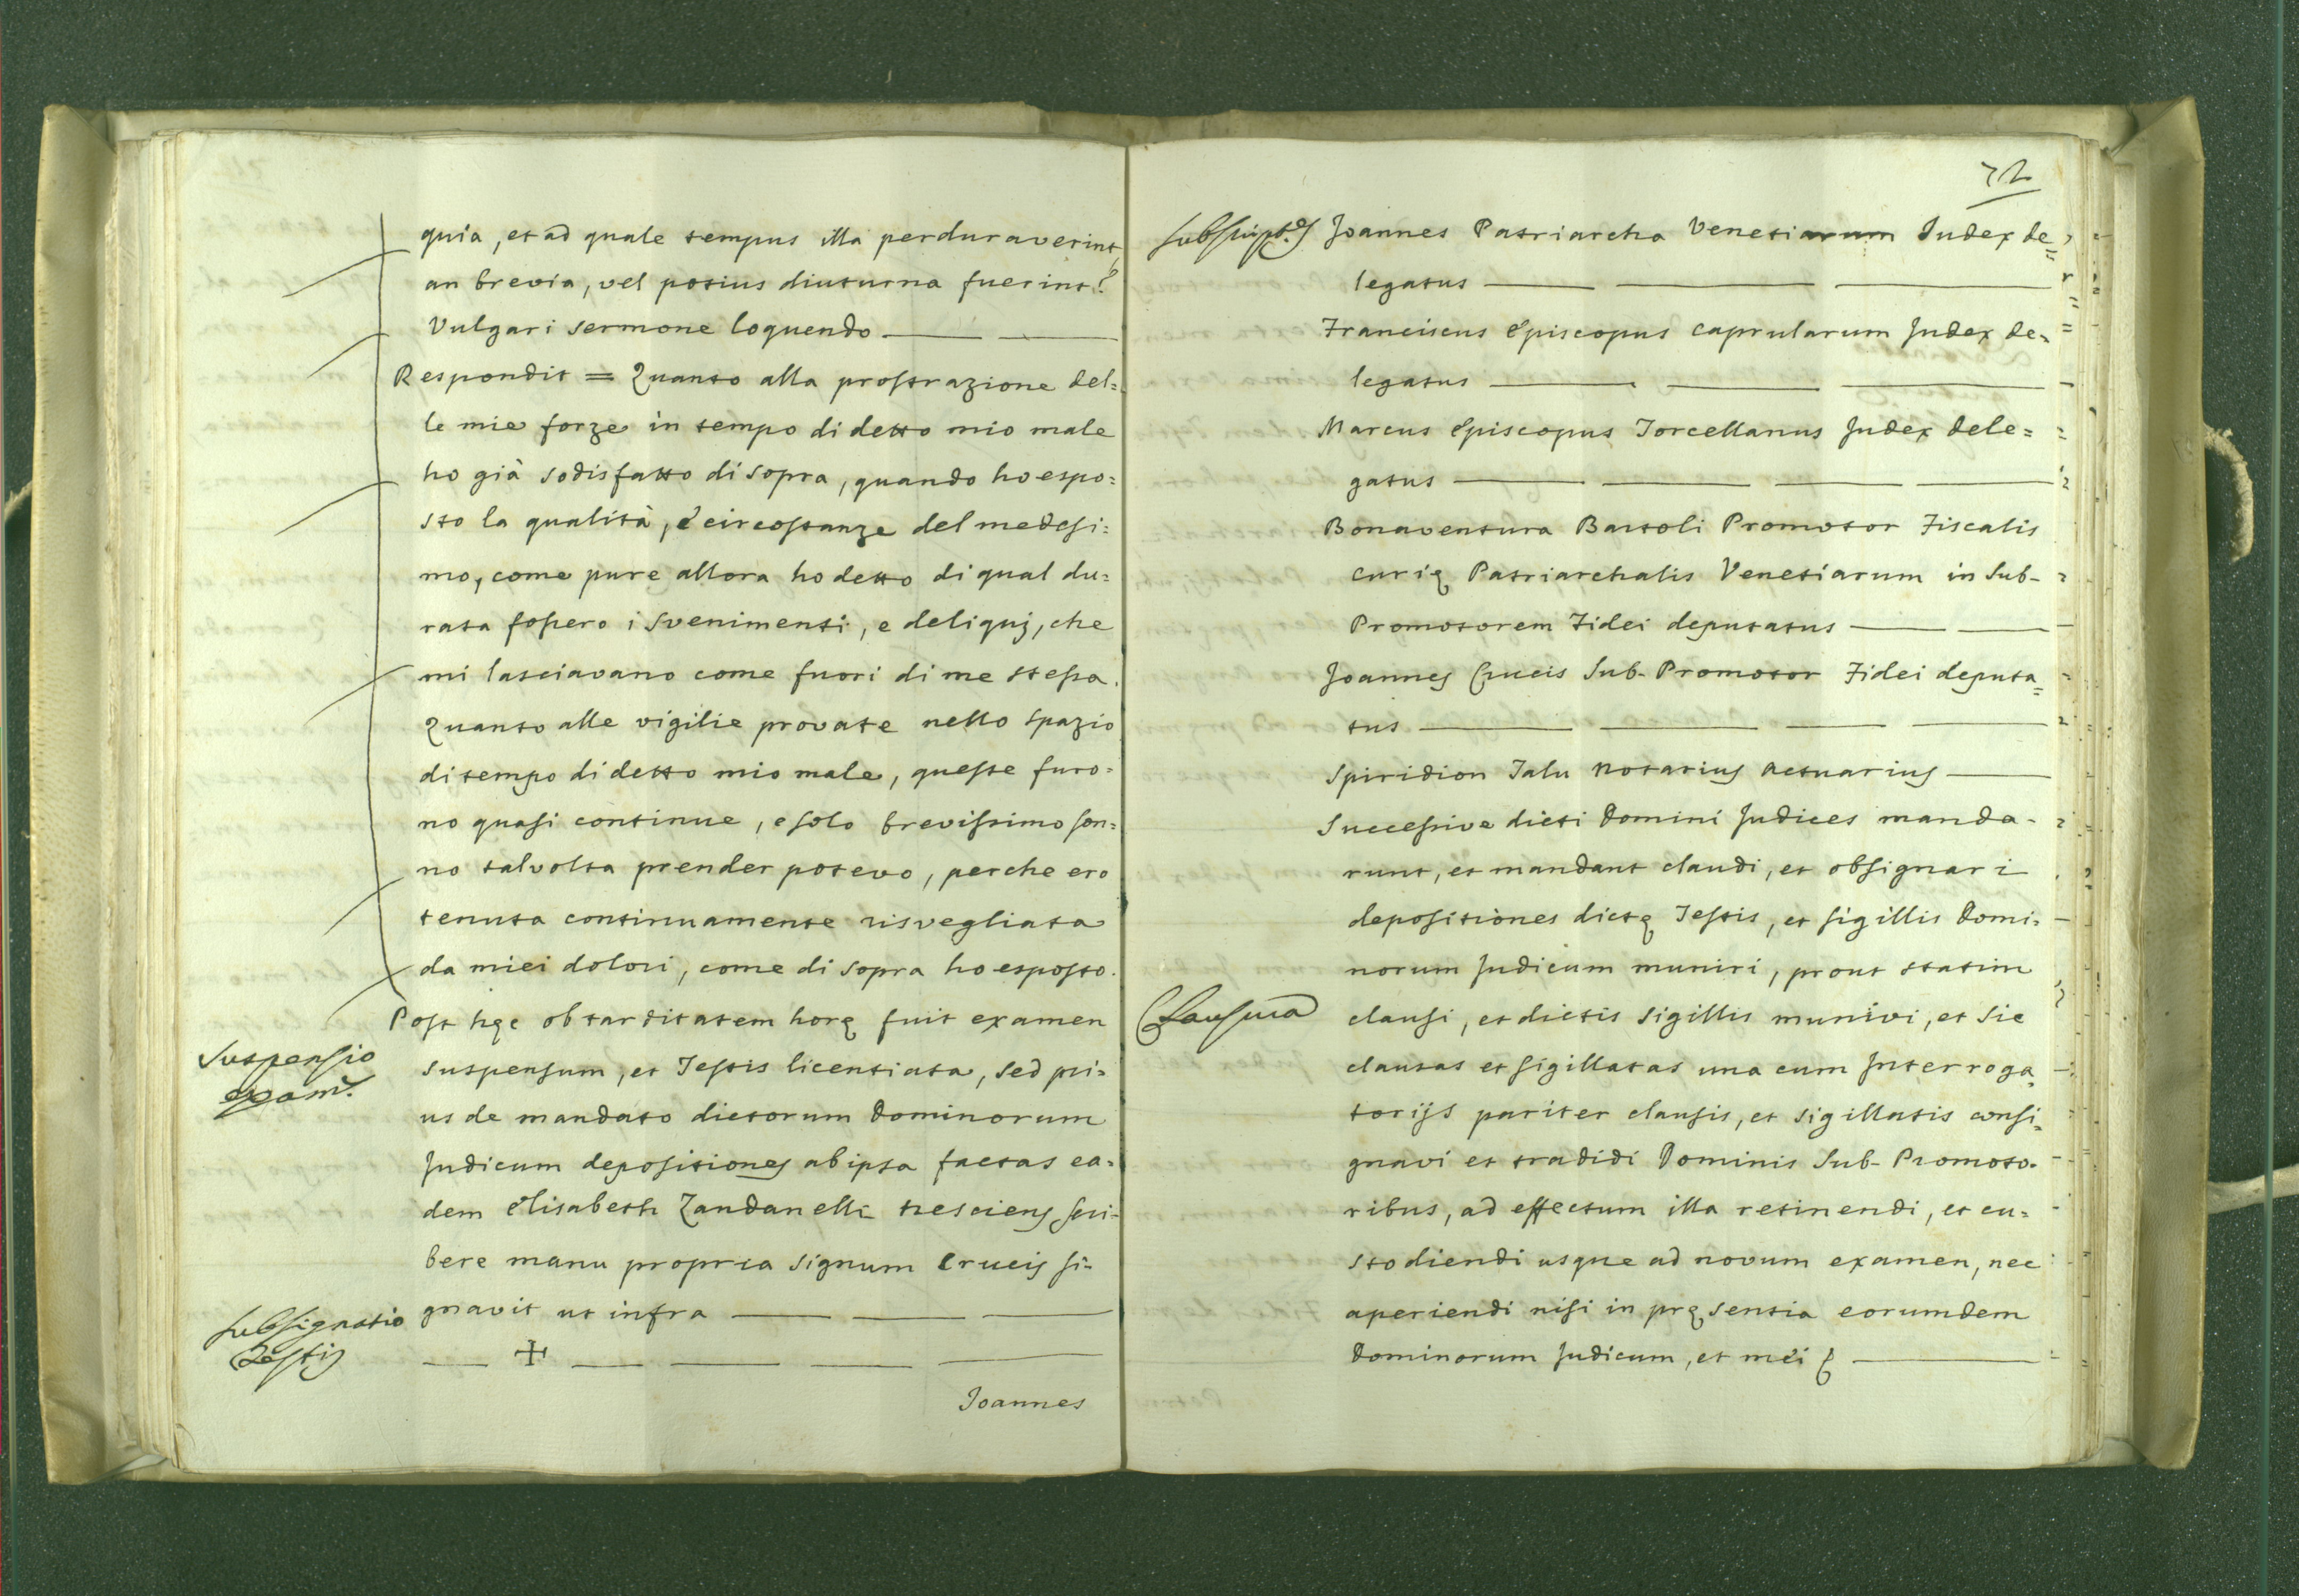 quia, et ad quale tempus illa perduraverint,
an brevia, vel potius diuturna fuerint?
Vulgari sermone loquendo
Respondit = Quanto alla prostrazione del=
le mie forze in tempo di detto mio male
ho già sodisfatto di sopra, quando ho espo=
sto la qualità, e circostanze del medesi=
mo, come pure allora ho detto di qual du=
rata fossero i svenimenti, e deliquj, che
mi lasciavano come fuori di me stessa.
Quanto alle vigilie provate nello spazio
di tempo di detto mio male, queste furo=
no quasi continue, e solo brevissimo son=
no talvolta prender potevo, perche ero
tenuta continuamente risvegliata
da miei dolori, come di sopra ho esposto.
Post hęc ob tarditatem horę fuit examen
Suspensio
exam.
suspensum, et Testis licentiata, sed pri=
us de mandato dictorum Dominorum
Judicum depositiones ab ipsa factas ea=
dem Elisabeth Zandanelli nesciens scri=
bere manu propria signum Crucis si=
gnavit ut infra
Subsignatio
Testis
+
Joannes
72
Subscript.es
Joannes Patriarcha Venetiarum Judex de=
legatus
Franciscus Episcopus Caprularum Judex de=
legatus
Marcus Episcopus Torcellanus Judex dele=
gatus
Bonaventura Bartoli Promotor Fiscalis
Curię Patriarchalis Venetiarum in Sub-
Promotorem Fidei deputatus
Joannes Crucis Sub-Promotor Fidei deputa=
tus
Spiridion Talu Notarius Actuarius
Successive dicti Domini Judices manda=
runt, et mandant claudi, et obsignari
depositiones dictę Testis, et sigillis Domi=
norum Judicum muniri, prout statim
Clausura
clausi, et dictis sigillis munivi, et sic
clausas et sigillatas una cum Interroga=
torijs pariter clausis, et sigillatis consi=
gnavi et tradidi Dominis Sub-Promoto=
ribus, ad effectum illa retinendi, et cu=
stodiendi usque ad novum examen, nec
aperiendi nisi in pręsentia eorumdem
Dominorum Judicum, et mei